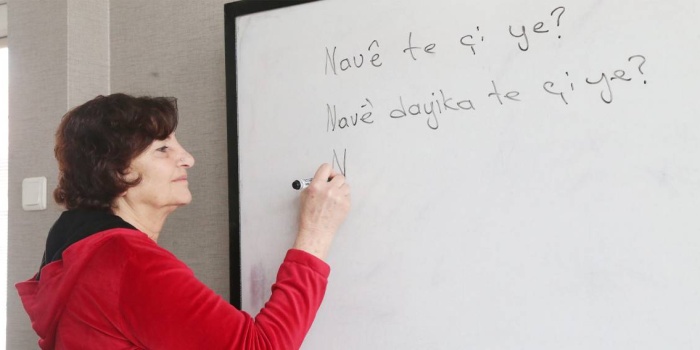 Navê te çi ye?
Navê dayika te çi ye?
N